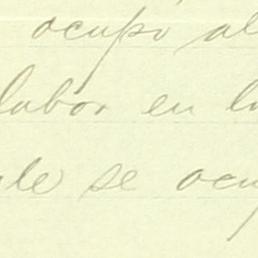 ocupó al
labor en l
ale se ocu